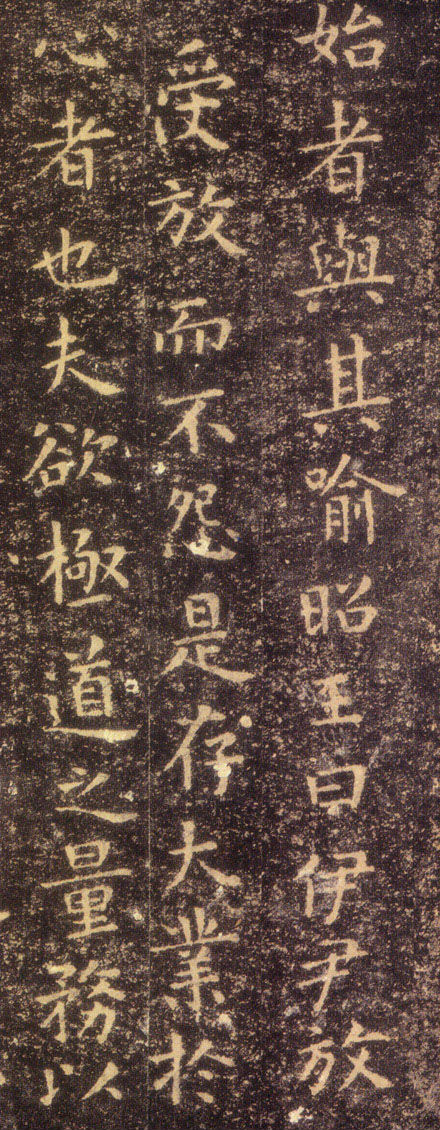 始者與其喻昭王曰伊尹放
受放而不怨是存大業於
心者也夫欲極道之量務以